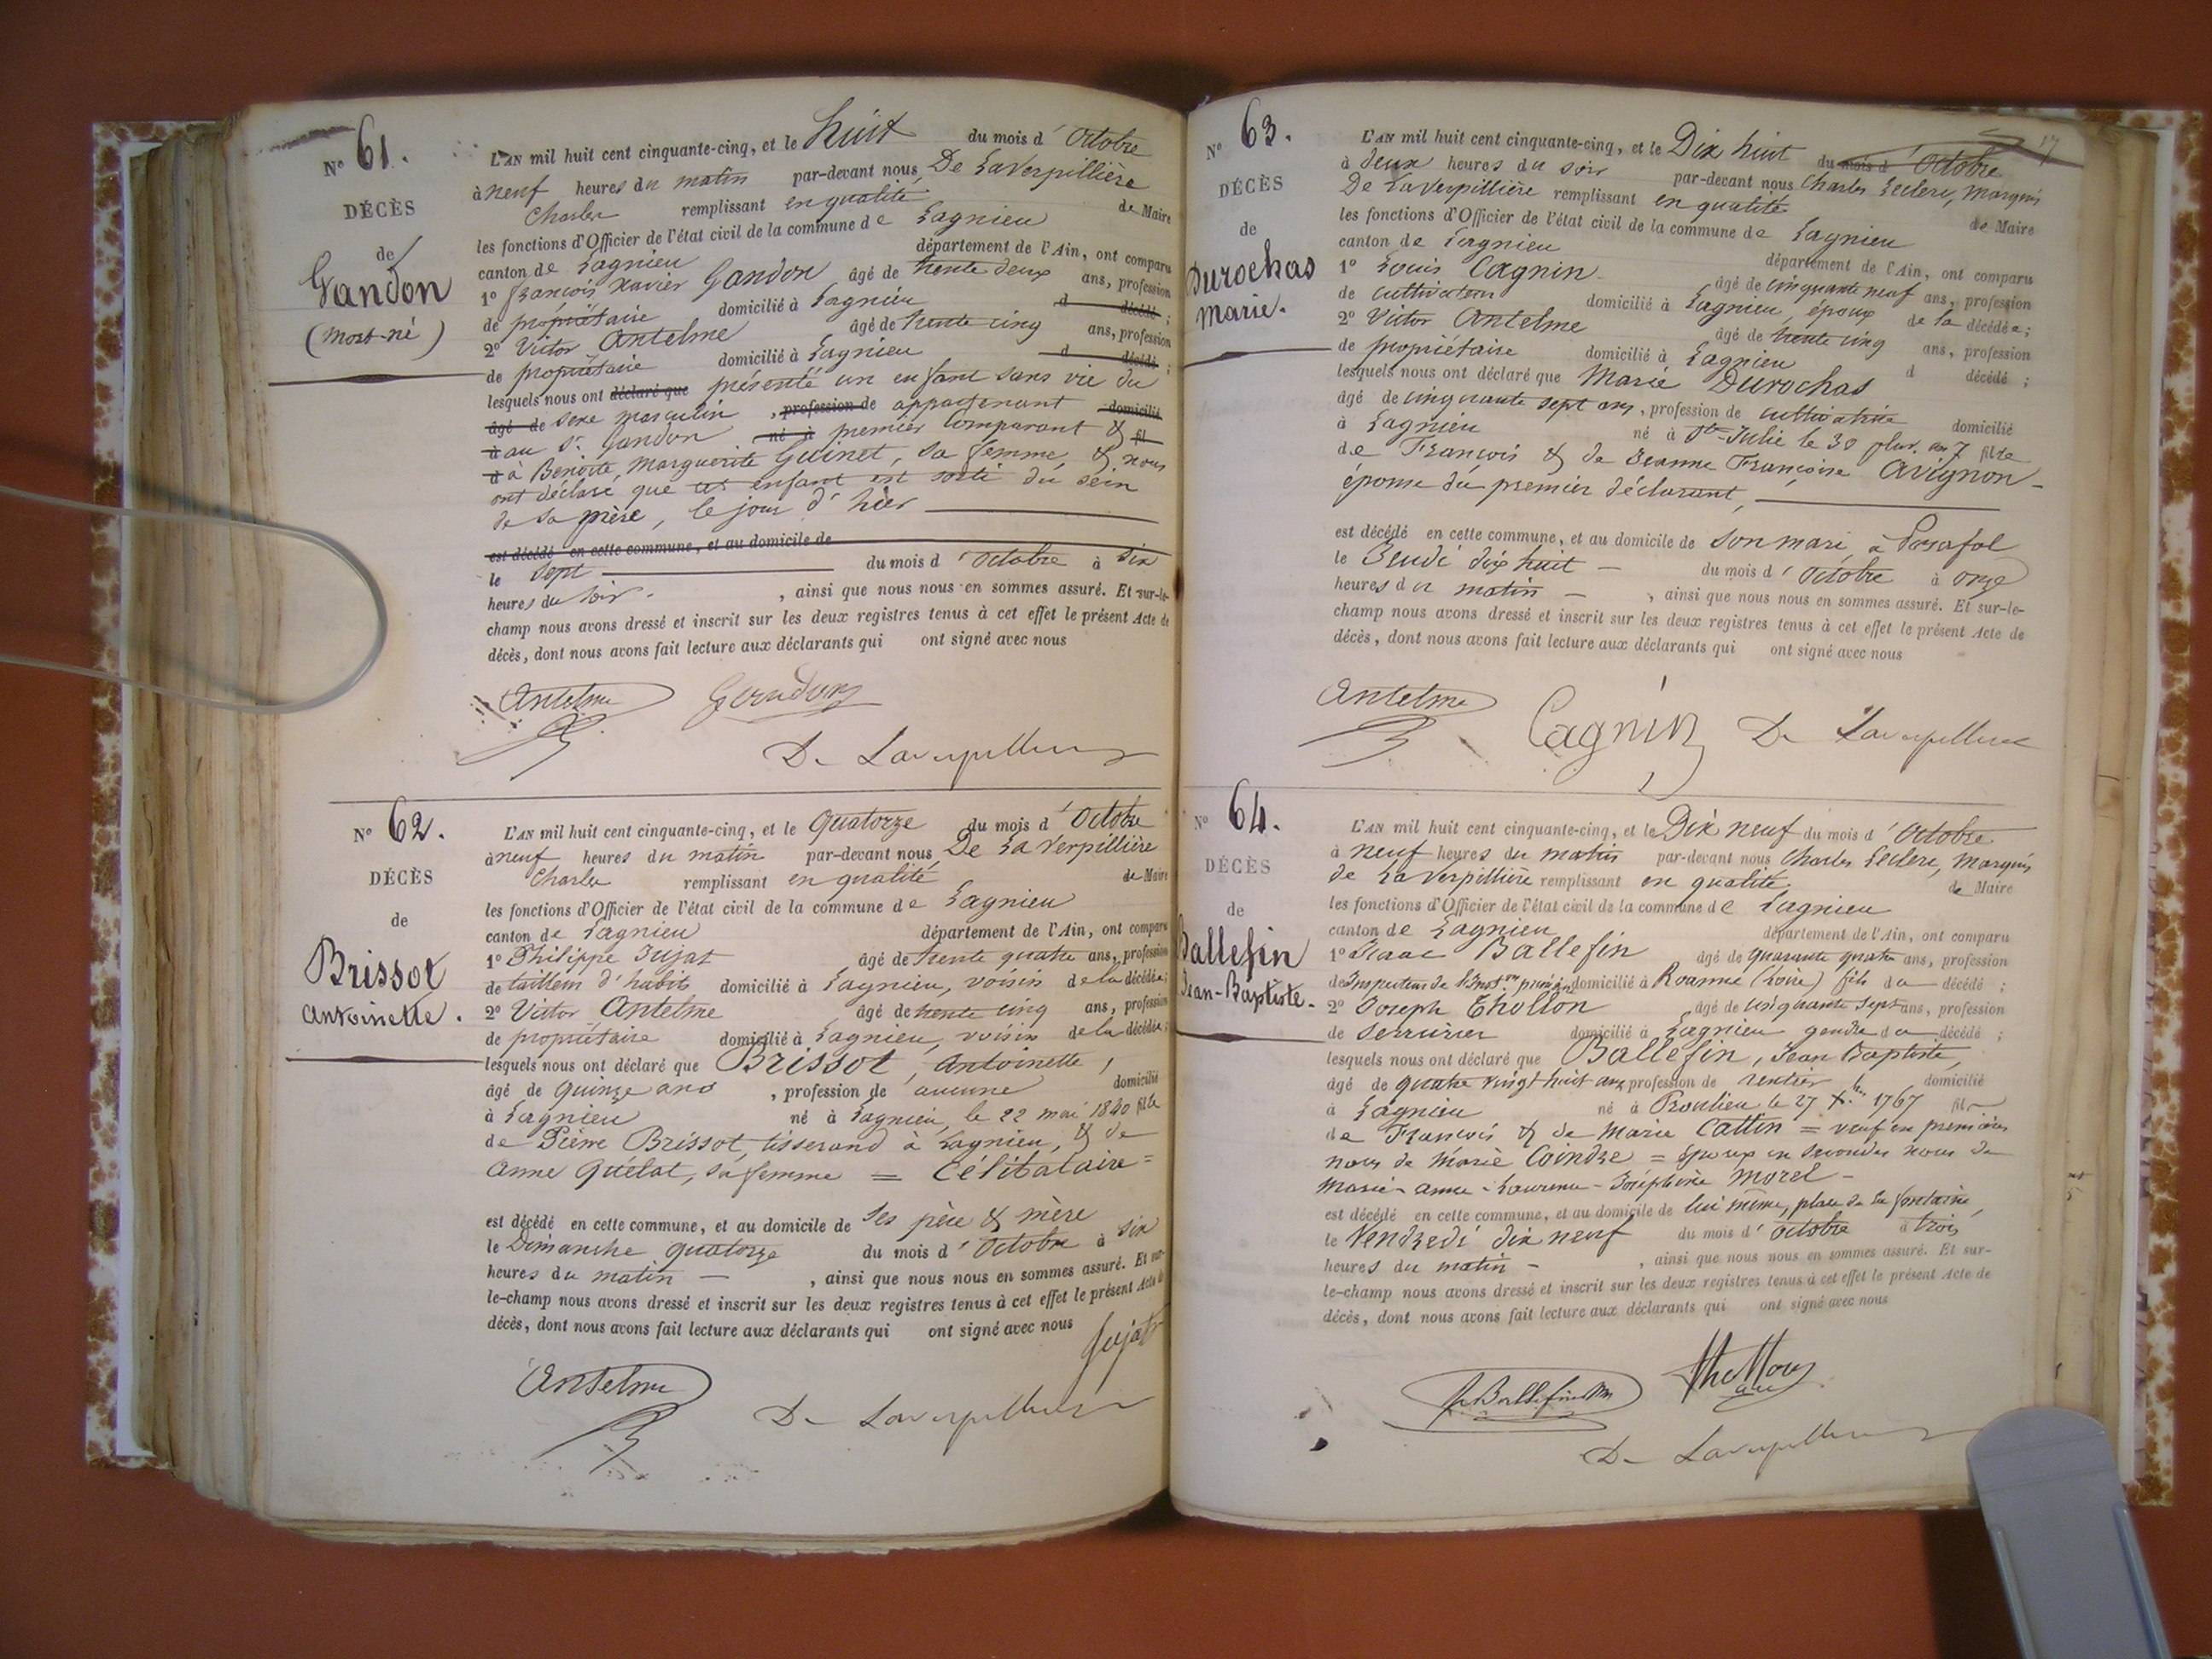 N° 61.
DÉCÈS
de
Gandon
(mort-né)
L'AN mil huit cent cinquante-cinq, et le huit du mois d'Octobre
à neuf heures du matin par-devant nous De LaVerpillière
Charles remplissant en qualité de Maire
les fonctions d'Officier de l'état civil de la commune de Lagnieu
canton de Lagnieu département de l'Ain, ont comparu
1° François Xavier Gandon âgé de trente deux ans, profession
de propriétaire domicilié à Lagnieu d décédé ;
2° Victor Antelme âgé de trente cinq ans, profession
de propriétaire domicilié à Lagnieu d décédé ;
lesquels nous ont déclaré que présenté un enfant sans vie du
âgé de sexe masculin , profession de appartenant domicilié
à au Sr. Gandon né à premier Comparant & fil
d à Benoite Marguerite Guinet, sa femme, & nous
ont déclaré que cet enfant est sorti du sein
de sa mère, le jour d'hier
est décédé en cette commune, et au domicile de
le sept du mois d'Octobre à six
heures du soir. , ainsi que nous nous en sommes assuré. Et sur-le-
champ nous avons dressé et inscrit sur les deux registres tenus à cet effet le présent Acte de
décès, dont nous avons fait lecture aux déclarants qui ont signé avec nous
Antelme Gandon
De Laverpilliere
N° 62.
DÉCÈS
de
Brissot
Antoinette.
L'AN mil huit cent cinquante-cinq, et le Quatorze du mois d'Octobre
à neuf heures du matin par-devant nous De La Verpillière
Charles remplissant en qualité de Maire
les fonctions d'Officier de l'état civil de la commune de Lagnieu
canton de Lagnieu département de l'Ain, ont comparu
1° Philippe Jujat âgé de trente quatre ans, profession
de tailleur d'habits domicilié à Lagnieu, voisin de la décédée;
2° Victor Antelme âgé de trente cinq ans, profession
de propriétaire domicilié à Lagnieu, voisin de la décédée;
lesquels nous ont déclaré que Brissot, Antoinette,
âgé de quinze ans , profession de aucune domicilié
à Lagnieu né à Lagnieu, le 22 mai 1840 fille
de Pierre Brissot, tisserand à Lagnieu, & de
Anne Quélat, sa femme = Célibataire =
est décédé en cette commune, et au domicile de ses père & mère
le Dimanche quatorze du mois d'Octobre à six
heures du matin — , ainsi que nous nous en sommes assuré. Et sur-
le-champ nous avons dressé et inscrit sur les deux registres tenus à cet effet le présent Acte de
décès, dont nous avons fait lecture aux déclarants qui ont signé avec nous
Jujat
Antelme
De Laverpilliere
17
N° 63.
DÉCÈS
de
Durochas
Marie.
L'AN mil huit cent cinquante-cinq, et le Dix huit du mois d'Octobre
à deux heures du soir par-devant nous Charles Leclerc, Marquis
De LaVerpillière remplissant en qualité de Maire
les fonctions d'Officier de l'état civil de la commune de Lagnieu
canton de Lagnieu département de l'Ain, ont comparu
1° Louis Cagnin âgé de cinquante neuf ans, profession
de cultivateur domicilié à Lagnieu, époux de la décédée;
2° Victor Antelme âgé de trente cinq ans, profession
de propriétaire domicilié à Lagnieu d décédé ;
lesquels nous ont déclaré que Marie Durochas
âgé de cinquante sept ans, profession de cultivatrice domicilié
à Lagnieu né à Ste-Julie le 30 pluv. an 7 fille
de François & de Jeanne Françoise Avignon -
épouse du premier déclarant,
est décédé en cette commune, et au domicile de son mari, à Posafol
le Jeudi dix huit — du mois d'Octobre à onze
heures du matin — , ainsi que nous nous en sommes assuré. Et sur-le-
champ nous avons dressé et inscrit sur les deux registres tenus à cet effet le présent Acte de
décès, dont nous avons fait lecture aux déclarants qui ont signé avec nous
Antelme Cagnin De Laverpilliere
N° 64.
DÉCÈS
de
Ballefin
Jean-Baptiste.
L'AN mil huit cent cinquante-cinq, et le Dix neuf du mois d'Octobre
à neuf heures du matin par-devant nous Charles Leclerc, Marquis
de La Verpillière remplissant en qualité de Maire
les fonctions d'Officier de l'état civil de la commune de Lagnieu
canton de Lagnieu département de l'Ain, ont comparu
1° Isaac Ballefin âgé de quarante quatre ans, profession
de Inspecteur de l'Inst.on prim.re domicilié à Roanne (Loire) fils du décédé ;
2° Joseph Thollon âgé de cinquante sept ans, profession
de serrurier domicilié à Lagnieu gendre du décédé ;
lesquels nous ont déclaré que Ballefin, Jean Baptiste,
âgé de quatre vingt huit ans, profession de rentier domicilié
à Lagnieu né à Proulieu le 27 Xbre 1767 fils
de François & de Marie Cattin = veuf en premières
noces de Marie Coindre = Epoux en secondes noces de
Marie-Anne-Laurence-Joséphine Morel -
est décédé en cette commune, et au domicile de lui même, place de la fontaine,
le Vendredi dix neuf du mois d'Octobre à trois
heures du matin - , ainsi que nous nous en sommes assuré. Et sur-
le-champ nous avons dressé et inscrit sur les deux registres tenus à cet effet le présent Acte de
décès, dont nous avons fait lecture aux déclarants qui ont signé avec nous
Ballefin Thollon
De Laverpilliere